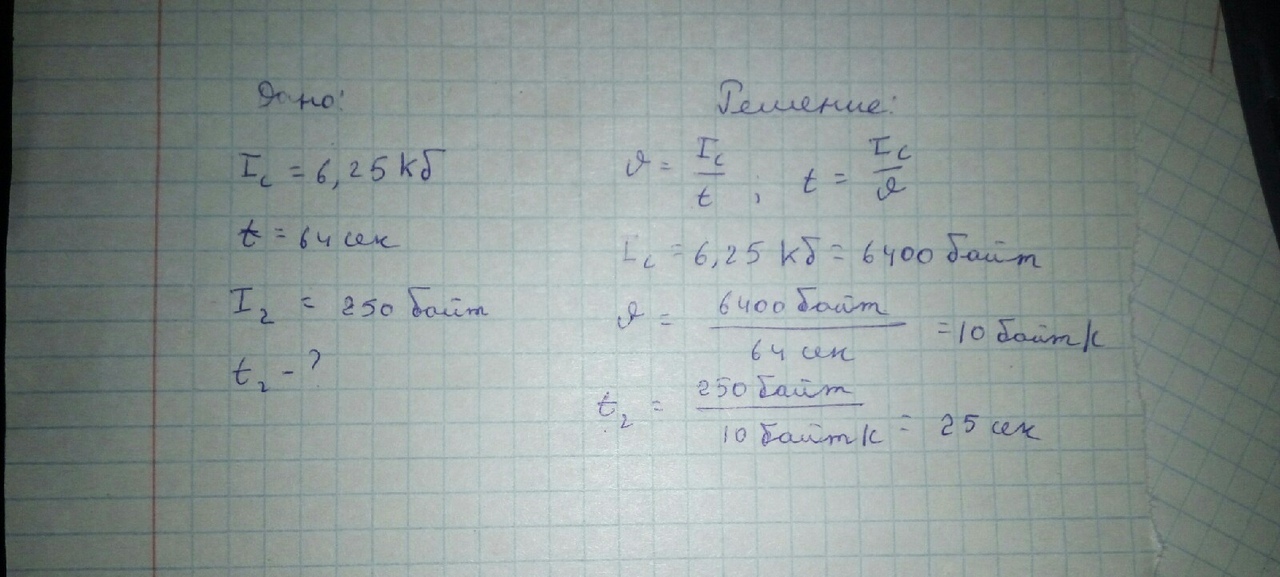 Дано:
I_c = 6,25 Кб
t = 64 сек
I_2 = 250 байт
t_2 - ?
Решение:
ϑ = I_c / t ; t = I_c / ϑ
I_c = 6,25 Кб = 6400 байт
ϑ = 6400 байт / 64 сек = 10 байт/с
t_2 = 250 байт / 10 байт/с = 25 сек